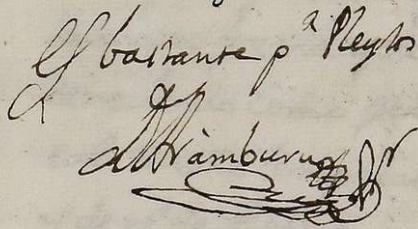 Es bastante pª Pleytos
Arámburu